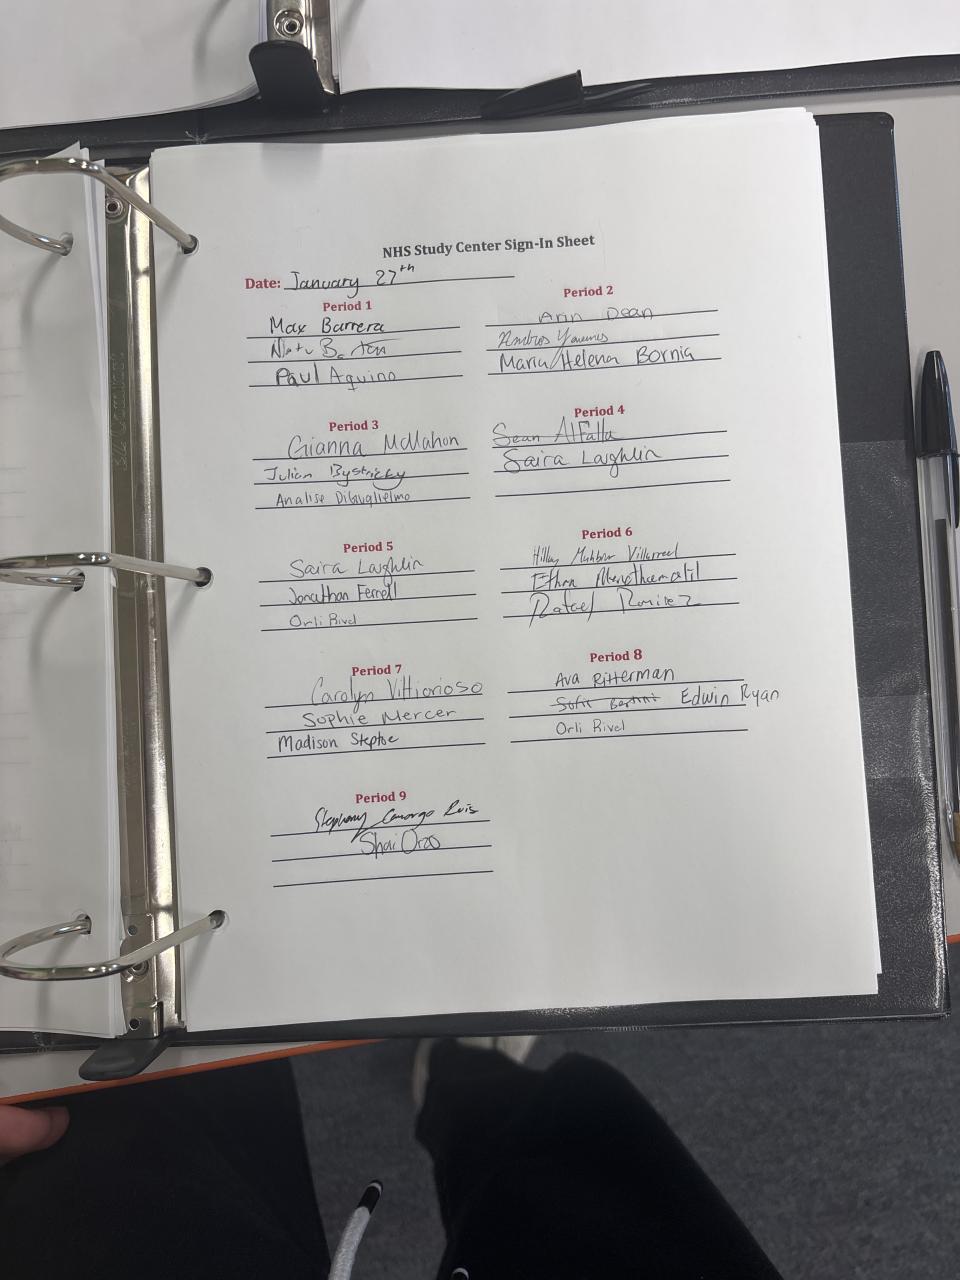 NHS Study Center Sign-In Sheet
Date: January 27th
Period 1
Max Barrera
Paul Aquino
Period 2
Arin Dean
Maria/Helena Bornia
Period 3
Gianna McMahon
Julian Bystricky
Analise DiGuglielmo
Period 4
Sean AlFalla
Saira Laughlin
Period 5
Saira Laughlin
Jonathan Ferrell
Orli Rivel
Period 6
Villarreal
Ethan
Rafael Ramirez
Period 7
Carolyn Vittiorioso
Sophie Mercer
Madison Steptoe
Period 8
Ava Ritterman
Edwin Ryan
Orli Rivel
Period 9
Stephany Camargo Ruis
Shai Oroo